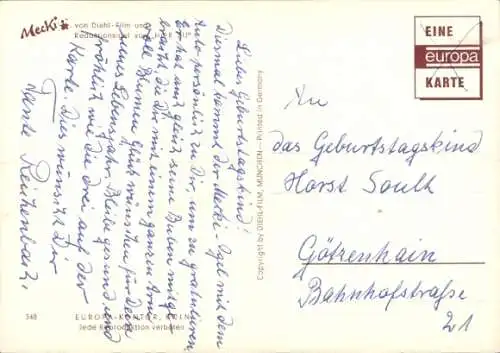 Mecki
von Diehl-Film und
Redaktionsigel von „HÖR ZU"
Liebes Geburtstagskind!
Diesmal kommt der Mecki-Igel mit dem
Auto persönlich zu Dir, um zu gratulieren.
Er hat auch gleich seine Buben mitge-
bracht, die Dir mit einem ganzen Arm
voll Blumen Glück wünschen für Dein
neues Lebensjahr. Bleibe gesund und
fröhlich wie die drei auf der
Karte. Dies wünscht Dir
Tante Reichenbach.
348
EUROPA-KARTEN,
Jede Reproduktion verboten
Copyright by DIEHL-FILM, MÜNCHEN — Printed in Germany
EINE
europa
KARTE
An
das Geburtstagskind
Horst
Götzenhain
Bahnhofstraße
21